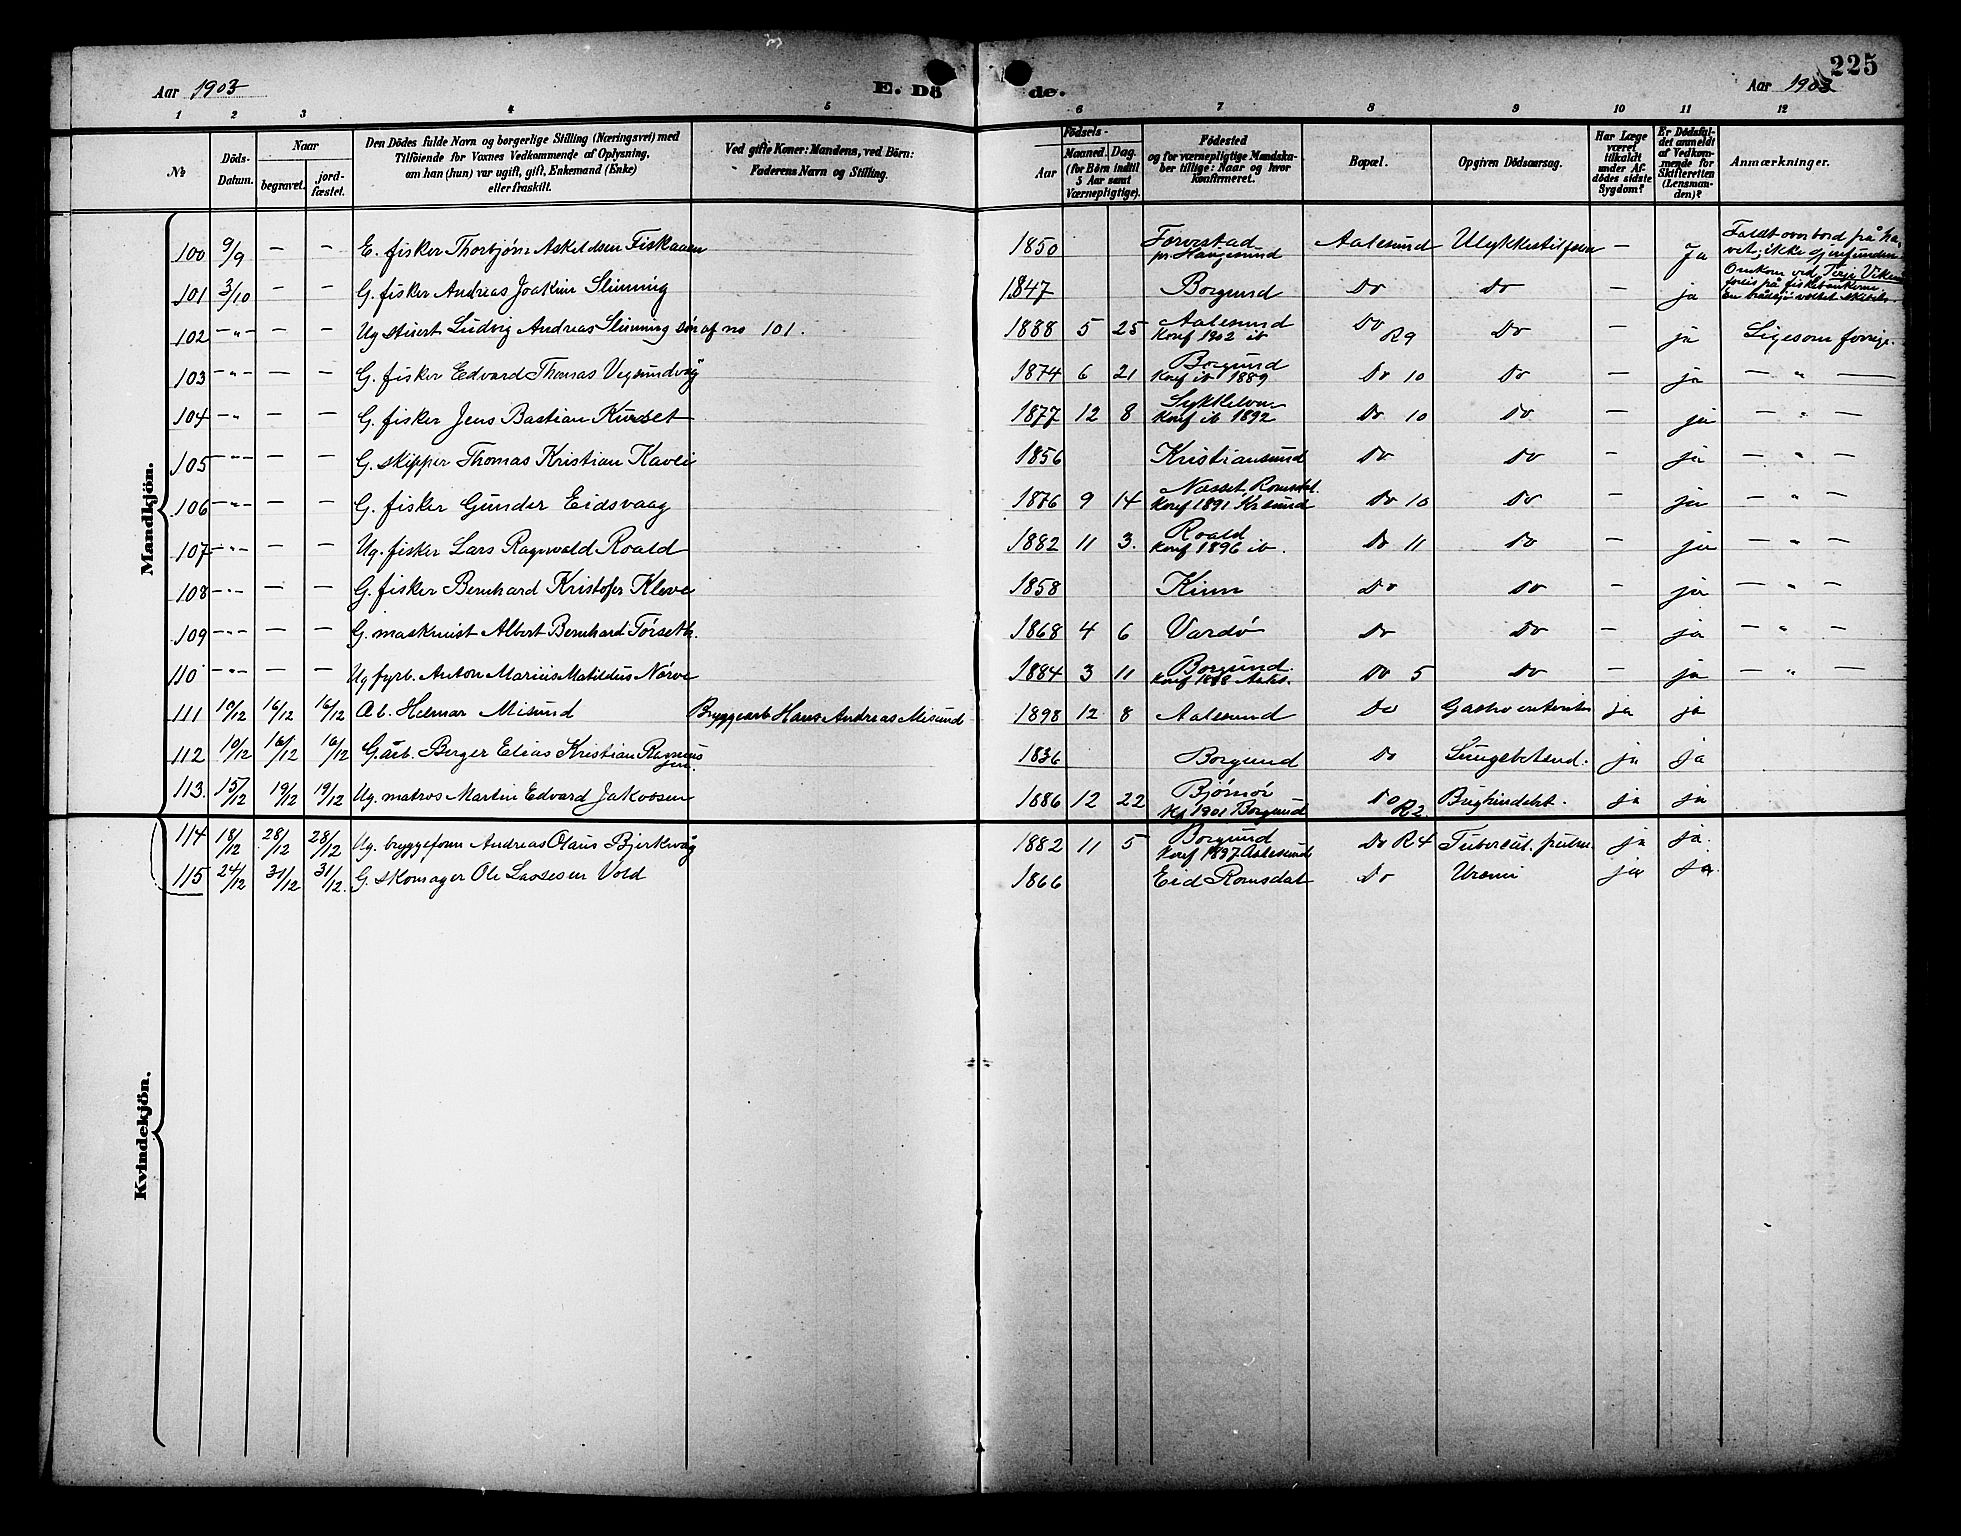 225
Aar 1903
E. Dö de.
Aar 1903
1 2 3 4 5 6 7 8 9 10 11 12
№
Döds-Datum.
Naar
begravet.
jord-fæstet.
Den Dödes fulde Navn og borgerlige Stilling (Næringsvei) med
Tilföiende for Voxnes Vedkommende af Oplysning,
om han (hun) var ugift, gift, Enkemand (Enke)
eller fraskilt.
Ved gifte Koner: Mandens, ved Börn:
Faderens Navn og Stilling.
Födsels-
Aar
Maaned. Dag.
(for Börn indtil
5 Aar samt
Værnepligtige).
Födested
og for værnepligtige Mandska-
ber tillige: Naar og hvor
konfirmeret.
Bopæl.
Opgiven Dödsaarsag.
Har Læge
været
tilkaldt
under Af-
dödes sidste
Sygdom?
Er Dödsfal-
det anmeldt
af Vedkom-
mende for
Skifteretten
(Lensman-
den)?
Anmærkninger.
Mandkjön.
100 9/9 — — E. fisker Thorbjørn Askeldsen Fiskaaen 1850 Torvestad pr. Haugesund Aalesund Ulykkestilfælde — Ja Faldt overbord på ha-vet; ikke gjenfunden
101 3/10 — — G. fisker Andreas Joakim Slinning 1847 Borgund Do Do — ja Omkom ved Terje Vikens forlis på fiskebankerne. En brådsjø væltet skibet.
102 -"- — — Ug stuert Ludvig Andreas Slinning søn af no 101. 1888 5 25 Aalesund Konf 1902 ib Do R9 Do — ja Ligesom forrige.
103 -"- — — G. fisker Edvard Thomas Vegsundvåg 1874 6 21 Borgund Konf ib 1889 Do 10 Do — ja — " —
104 -"- — — G. fisker Jens Bastian Kurset 1877 12 8 Sykkelven Konf ib 1892 Do 10 Do — ja — " —
105 -"- — — G. skipper Thomas Kristian Kavli 1856 Kristiansund Do Do — ja — " —
106 -"- — — G. fisker Gunder Eidsvaag 1876 9 14 Næsset, Romsdal. Konf 1891 Kr.sund Do 10 Do — ja — " —
107 -"- — — Ug. fisker Lars Ragnvald Roald 1882 11 3. Roald Konf 1896 ib. Do 11 Do — ja — " —
108 -"- — — G. fisker Bernhard Kristofer Kleve 1858 Kinn Do Do — ja — " —
109 -"- — — G. maskinist Albert Bernhard Tørseth. 1868 4 6 Vardø Do Do — ja — " —
110 -"- — — Ug fyrb. Anton Marius Matildus Nørve 1884 3 11 Borgund. Konf Aales. Do 5 Do — ja — " —
111 10/12 16/12 16/12 Helmar Misund Bryggearb Hans Andreas Misund 1898 12 8 Aalesund Do Gastroenterit ja ja
112 10/12 16/12 16/12 G. arb. Berger Elias Kristian Rasmussen 1836 Borgund Do Lungebetænd. ja ja
113. 15/12 19/12 19/12 Ug. matros Martin Edvard Jakobsen 1886 12 22 Bjørnør Kf 1901 Borgund Do R2. Bughindebet. ja ja
114 18/12 28/12 28/12 Ug. bryggeform Andreas Olaus Bjerkvåg 1882 11 5 Borgund Konf 1897 Aalesund Do R4 Tubercul. pulm. ja ja.
115 24/12 31/12 31/12. G. skomager Ole Lassesen Vold 1866 Eid Romsdal Do Uræmi ja ja.
Kvindekjön.